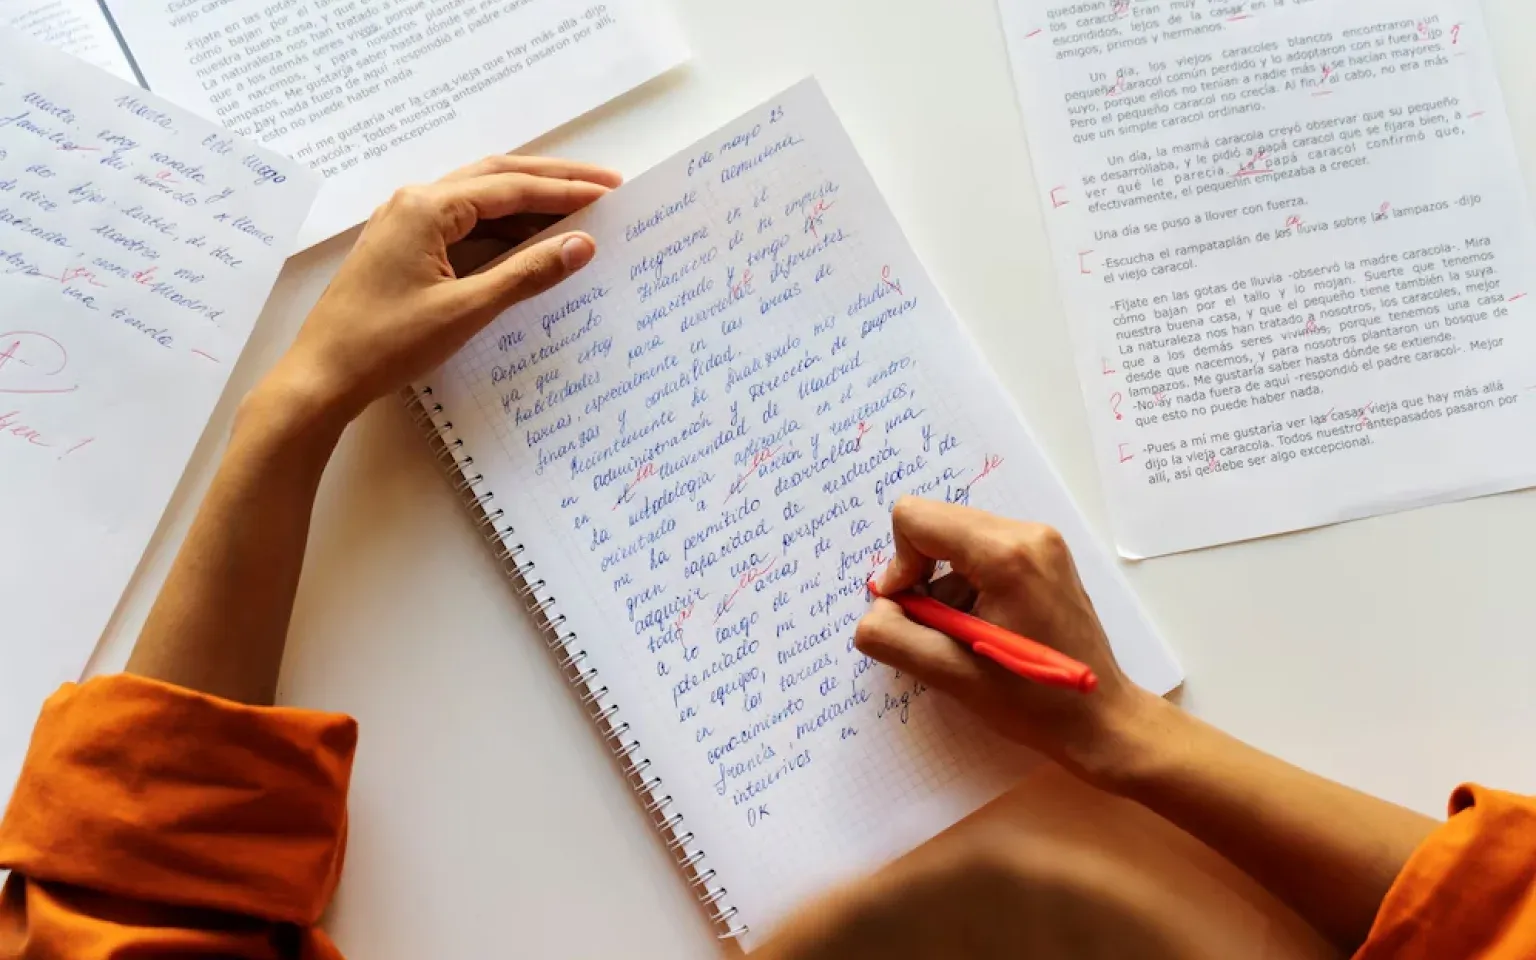 Marta, Ella luego
Marta. estoy casada y
familia. Mi marido se llama
dos hijos: Isabel, de doce
Madrid.
una tienda
viejo caraco
-Fíjate en las gotas
cómo bajan por el tal
nuestra buena casa, y que el
La naturaleza nos han tratado a nosotros
que a los demás seres vivos, porque
que nacemos, y para nosotros plantaron
lampazos. Me gustaría saber hasta dónde se extiende
-No hay nada fuera de aquí -respondió el padre caracol
esto no puede haber nada.
mí me gustaría ver la casa vieja que hay más allá -dijo
aracola-. Todos nuestros antepasados pasaron por allí,
be ser algo excepcional.
6 de mayo 23
Estudiante Almudena
Me gustaría integrarme en el
Departamento Financiero de su empresa
ya que estoy capacitado y tengo las
habilidades para desarrollar diferentes
tareas, especialmente en las áreas de
finanzas y contabilidad.
Recientemente he finalizado mis estudios
en administración y Dirección de empresas
en el la Universidad de Madrid
La metodología aplicada en el centro,
orientada a el la acción y resultados,
me ha permitido desarrollar una
gran capacidad de resolución y
adquirir una perspectiva global de
todo el la áreas de la empresa. se
a lo largo de mi formac
potenciado mi espíritu
en equipo, iniciativa
en las tareas, a
conocimiento de idi
francés, mediante
intensivos en Ingl
OK
quedaban
los caracol. Eran muy
escondidos, lejos de la casa en la
amigos, primos y hermanos.
Un día, los viejos caracoles blancos encontraron un
pequeño caracol común perdido y lo adoptaron con si fuera ijo
suyo, porque ellos no tenían a nadie más y se hacían mayores.
Pero el pequeño caracol no crecía. Al fin y al cabo, no era más
que un simple caracol ordinario.
Un día, la mamá caracola creyó observar que su pequeño
se desarrollaba, y le pidió a papá caracol que se fijara bien, a
ver qué le parecía. papá caracol confirmó que,
efectivamente, el pequeñín empezaba a crecer.
Un día se puso a llover con fuerza.
-Escucha el rampataplán de los lluvia sobre las lampazos -dijo
el viejo caracol.
-Fíjate en las gotas de lluvia -observó la madre caracola-. Mira
cómo bajan por el tallo y lo mojan. Suerte que tenemos
nuestra buena casa, y que el pequeño tiene también la suya.
La naturaleza nos han tratado a nosotros, los caracoles, mejor
que a los demás seres vivimos, porque tenemos una casa
desde que nacemos, y para nosotros plantaron un bosque de
lampazos. Me gustaría saber hasta dónde se extiende.
-No ay nada fuera de aquí -respondió el padre caracol-. Mejor
que esto no puede haber nada.
-Pues a mí me gustaría ver las casas vieja que hay más allá
dijo la vieja caracola. Todos nuestro antepasados pasaron por
allí, así qe debe ser algo excepcional.